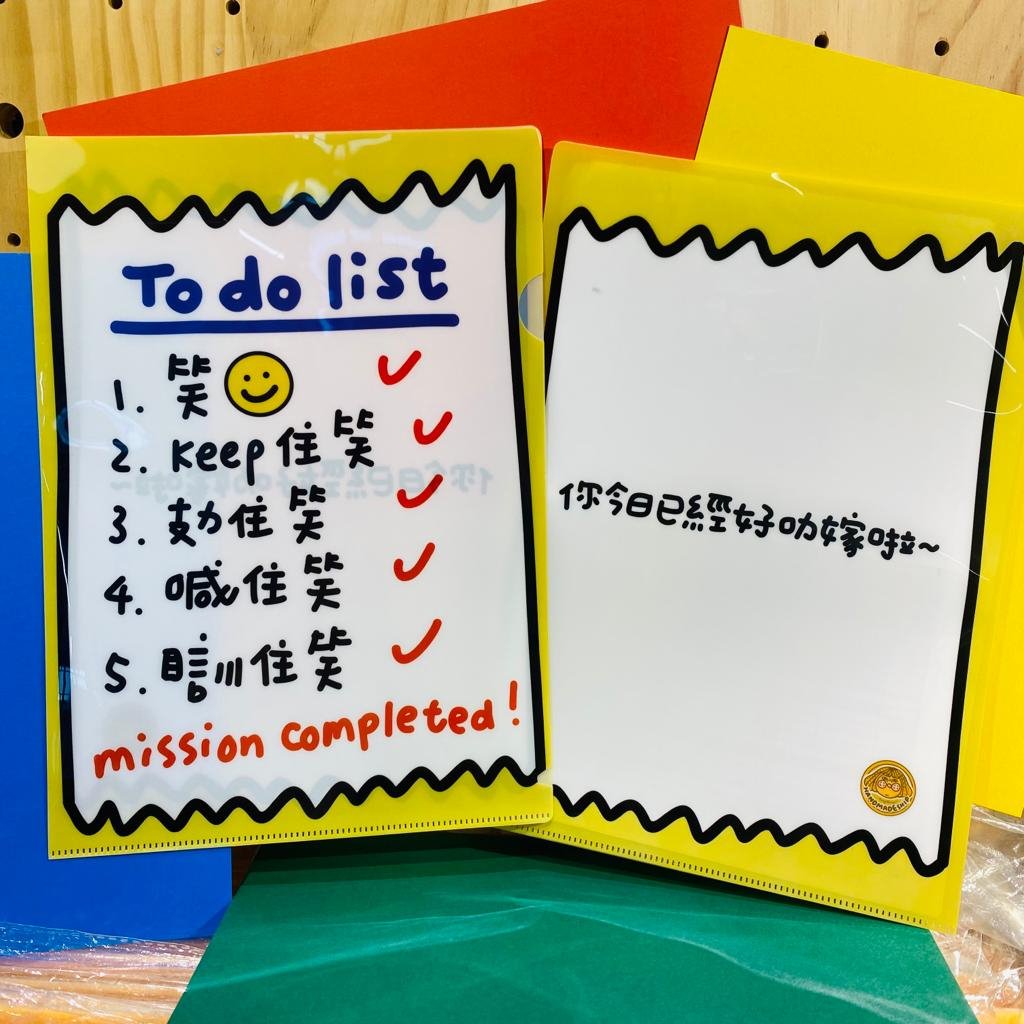 To do list
1. 笑
2. keep 住笑
3. 攰住笑
4. 喊住笑
5. 瞓住笑
mission completed!
你今日已經好叻嫁啦~
HANDMADESHIP